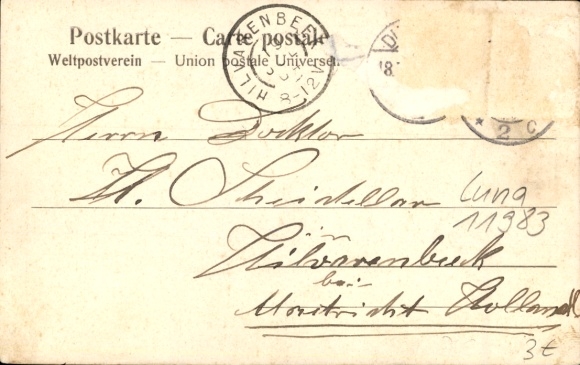 Postkarte — Carte postale
Weltpostverein — Union postale Universelle
HILVARENBEEK
19
8-12V
2 C
Herrn Docktor
H.
in
Hilvarenbeek
bei
Mastricht Holland
Luna
11983
3€